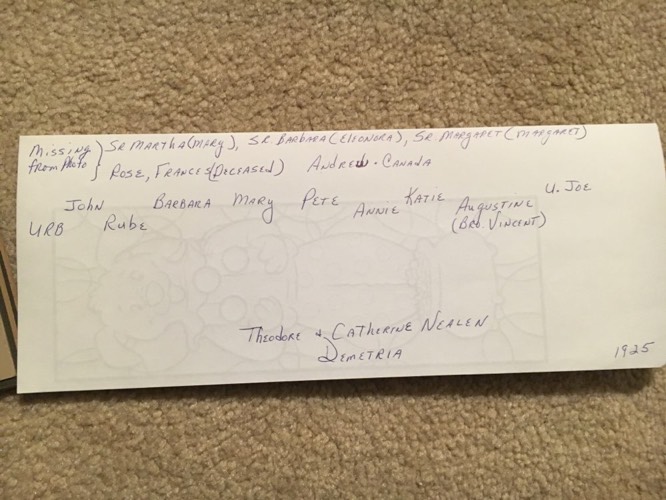 Missing } Sr Martha (Mary), Sr. Barbara (Eleonora), Sr. Margaret (Margaret)
from Photo } Rose, Frances (Deceased) Andrew - Canada
John Barbara Mary Pete Annie Katie Augustine U. Joe
Urb Rube (Bro. Vincent)
Theodore & Catherine Nealen
Demetria
1925